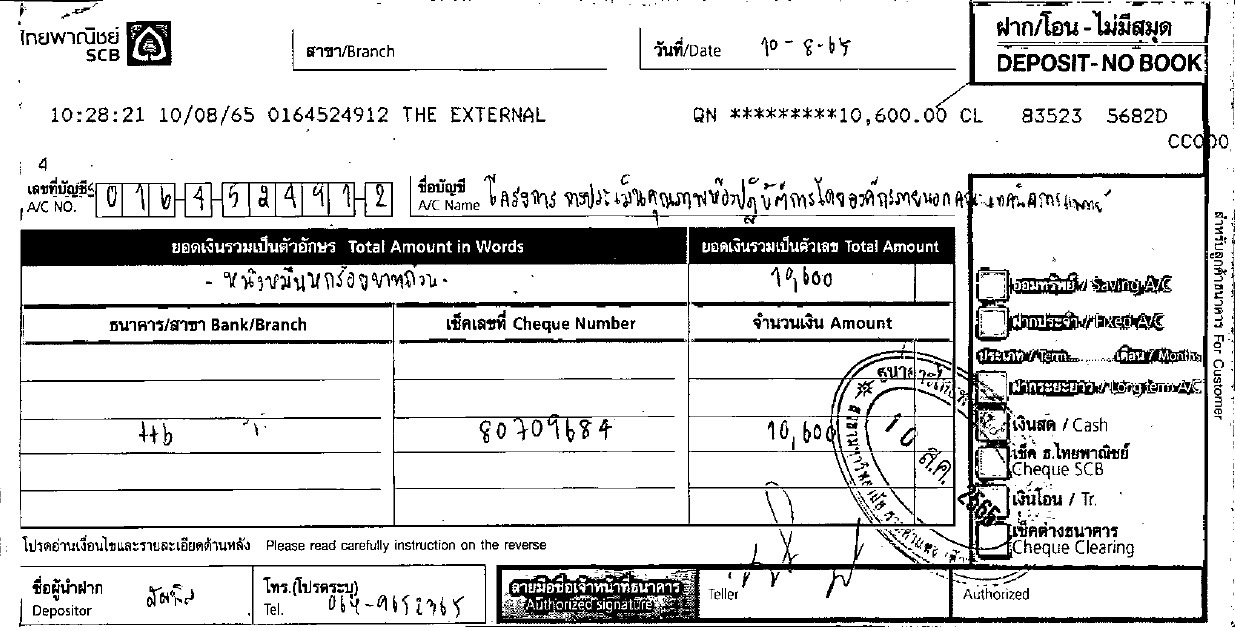 ไทยพาณิชย์
SCB
สาขา/Branch
วันที่/Date 10-8-65
ฝาก/โอน - ไม่มีสมุด
DEPOSIT- NO BOOK
10:28:21 10/08/65 0164524912 THE EXTERNAL QN *********10,600.00 CL 83523 5682D
CC000
4
เลขที่บัญชี
A/C NO. 016-4-52491-2
ชื่อบัญชี
A/C Name โครงการ การประเมินคุณภาพห้องปฏิบัติการโดยองค์กรภายนอก คณะเทคนิคการแพทย์
ยอดเงินรวมเป็นตัวอักษร Total Amount in Words ยอดเงินรวมเป็นตัวเลข Total Amount
- หนึ่งหมื่นหกร้อยบาทถ้วน - 10,600
ธนาคาร/สาขา Bank/Branch เช็คเลขที่ Cheque Number จำนวนเงิน Amount
80709684 10,600
ออมทรัพย์ / Saving A/C
ฝากประจำ / Fixed A/C
ประเภท / Term........... เดือน / Months
ฝากระยะยาว / Long term A/C
เงินสด / Cash
เช็ค ธ.ไทยพาณิชย์
Cheque SCB
เงินโอน / Tr.
เช็คต่างธนาคาร
Cheque Clearing
10 ส.ค. 2565
สำหรับลูกค้าธนาคาร For Customer
โปรดอ่านเงื่อนไขและรายละเอียดด้านหลัง Please read carefully instruction on the reverse
ชื่อผู้นำฝาก
Depositor
โทร.(โปรดระบุ)
Tel. 064-9652365
ลายมือชื่อเจ้าหน้าที่ธนาคาร
Authorized signature
Teller
Authorized